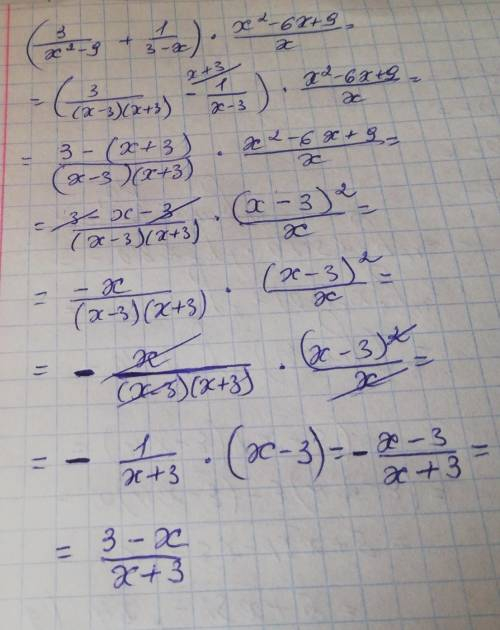 (3/(x²-9) + 1/(3-x)) · (x²-6x+9)/x =
= (3/((x-3)(x+3)) - 1/(x-3) ^(x+3)) · (x²-6x+9)/x =
= (3-(x+3))/((x-3)(x+3)) · (x²-6x+9)/x =
= (3-x-3)/((x-3)(x+3)) · (x-3)²/x =
= -x/((x-3)(x+3)) · (x-3)²/x =
= - x/((x-3)(x+3)) · (x-3)²/x =
= - 1/(x+3) · (x-3) = - (x-3)/(x+3) =
= (3-x)/(x+3)